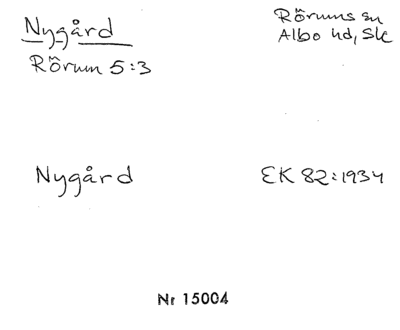 Nygård
Rörums sn
Albo hd, Sk
Rörum 5:3
Nygård
EK 82:1934
Nr 15004